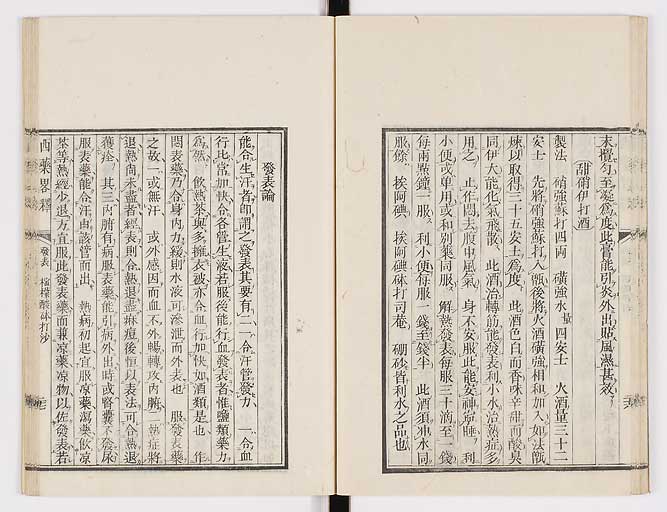 末攪勻至凝爲度此膏能引炎外出貼風濕甚效
甜硝伊打酒
製法 硝強蘇打四両 磺強水 四安士 火酒量三十二
安士 先將硝強蘇打入甑後將火酒磺強相和加入如法甑
煉以取得三十五安士爲度 此酒色白而香味辛甜而酸臭
同伊大能化氣飛散 此酒治轉筋能發表利小水治熱症多
用之 止作悶去腹中風氣 身不安服此能安神寧睡 利
小便或單用或和別藥同服 解熱發表每服三十滴至一錢
每兩點鐘一服 利小便每服一錢至錢半 此酒須冲水同
服餘 挨阿碘 挨阿碘砵打司菴 硼砂皆利水之品也
發表論
能令生汗者即謂之發表其要有二一令汗管發力 一令血
行比常加快令各管生液若服後能行血發表者惟鹽類藥力
爲然 飲熱茶與多擁衣被亦令血行加快如酒類是也 作
悶表藥乃令身內力緩則水液可滲泄而外表也 服發表藥
之故 一或無汗 或外感因而血不外暢轉攻內臟 一熱症將
退熱尚未盡者經表則令熱退盡麻痘後恒以表法可令熱退
獲痊 其三內臟有病服表藥能引病外出時或腎囊不發尿
服表藥能令汗由該管而出 熱病初起宜服凉藥瀉藥飲凉
茶等熱經少退方宜服此發表藥而兼凉藥凉物以佐發表若
西藥畧釋
發表 檸檬酸砵打沙